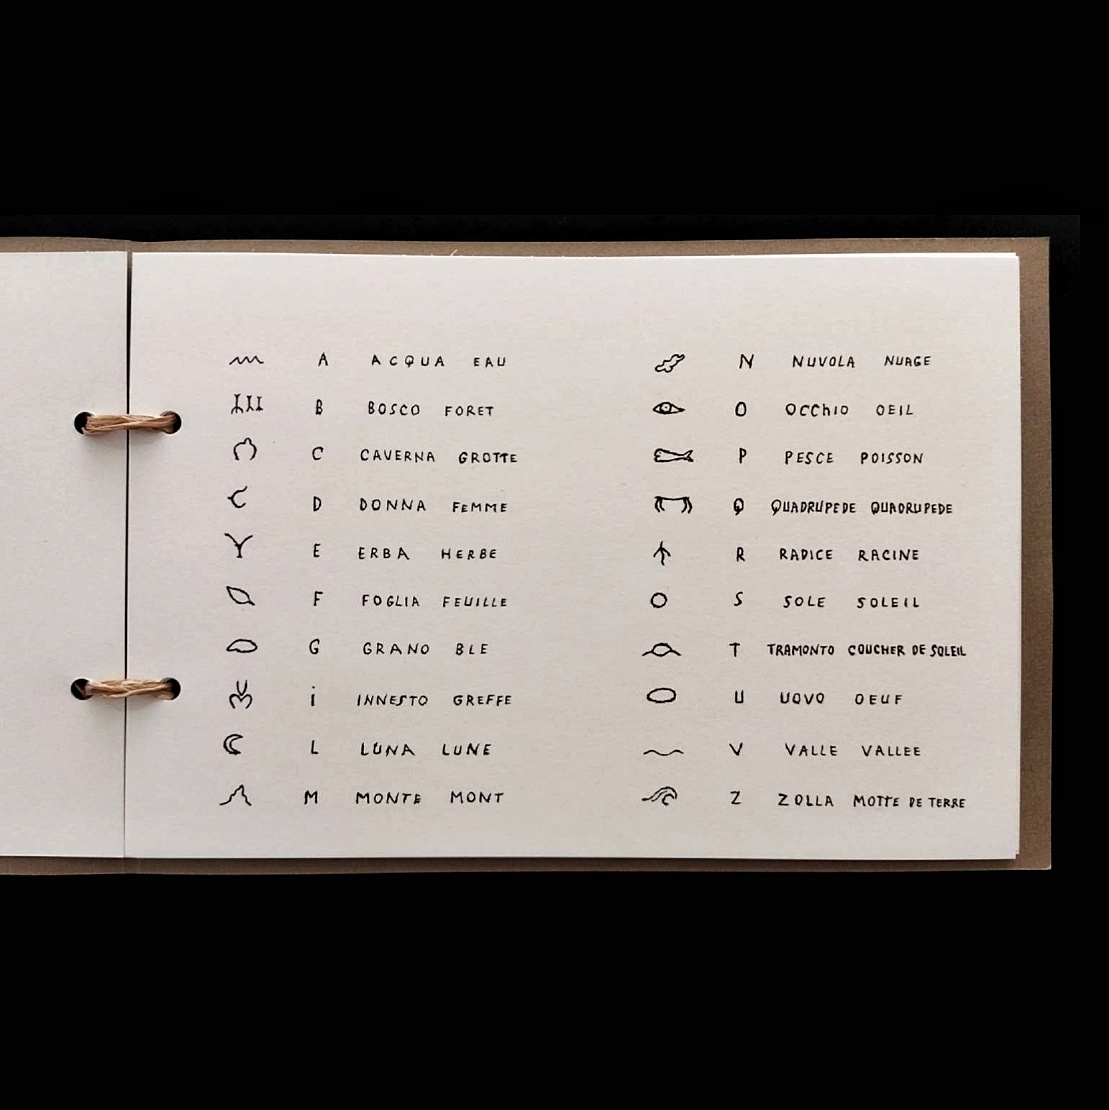 A ACQUA EAU
B BOSCO FORET
C CAVERNA GROTTE
D DONNA FEMME
E ERBA HERBE
F FOGLIA FEUILLE
G GRANO BLE
i INNESTO GREFFE
L LUNA LUNE
M MONTE MONT
N NUVOLA NUAGE
O OCChIO OEIL
P PESCE POISSON
Q QUADRUPEDE QUADRUPEDE
R RADICE RACINE
S SOLE SOLEIL
T TRAMONTO COUCHER DE SOLEIL
U UOVO OEUF
V VALLE VALLEE
Z ZOLLA MOTTE DE TERRE